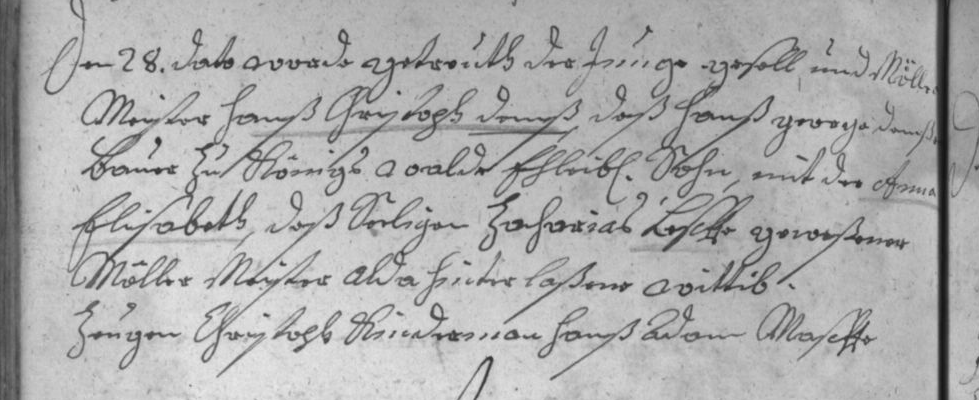 Den 28. dato worde getreuth der Junge gesell und Möller
Meister Hanß Christoph Demß, deß Hanß George Demß
bauer zu Königs walde Ehleibl. Sohn, mit der Anna
Elisabeth, deß Seeligen Zacharias gewesener
Möller Meister alda hinter laßene wittib.
Zeugen Christoph Kinderman Hanß Adam